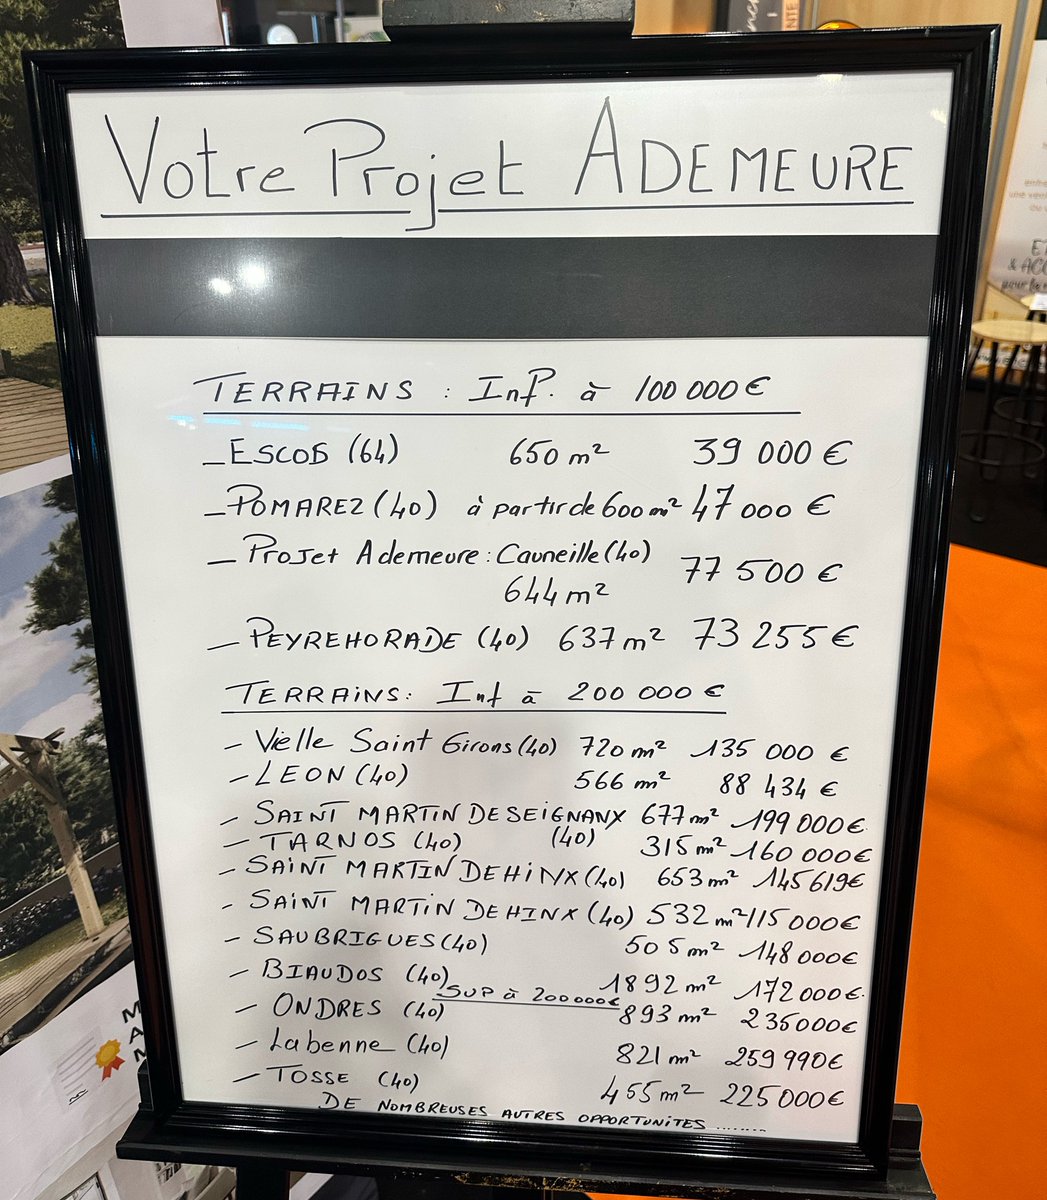 Votre Projet ADEMEURE
TERRAINS : Inf. à 100 000 €
- ESCOS (64) 650 m² 39 000 €
- POMAREZ (40) à partir de 600 m² 47 000 €
- Projet Ademeure : Cauneille (40) 77 500 €
644 m²
- PEYREHORADE (40) 637 m² 73 255 €
TERRAINS : Inf à 200 000 €
- Vielle Saint Girons (40) 720 m² 135 000 €
- LEON (40) 566 m² 88 434 €
- SAINT MARTIN DE SEIGNANX 677 m² 199 000 €
(40)
- TARNOS (40) 315 m² 160 000 €
- SAINT MARTIN DE HINX (40) 653 m² 145 619 €
- SAINT MARTIN DE HINX (40) 532 m² 115 000 €
- SAUBRIGUES (40) 505 m² 148 000 €
- BIAUDOS (40) 1892 m² 172 000 €
SUP à 200 000 €
- ONDRES (40) 893 m² 235 000 €
- Labenne (40) 821 m² 259 990 €
- TOSSE (40) 455 m² 225 000 €
DE NOMBREUSES AUTRES OPPORTUNITES ........